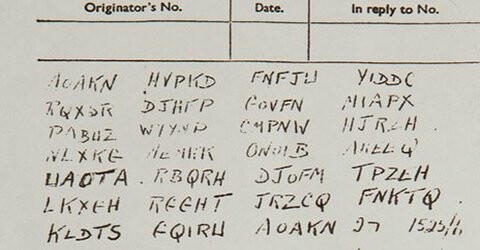 Originator's No. Date. In reply to No.
AOAKN HVPKD FNFJU YIDDC
RQXSR DJHFP GOVFN MIAPX
PABUZ WYYNP CMPNW HJRZH
NLXKG MEMKK ONOIB AKEEQ
UAOTA RBQRH DJOFM TPZEH
LKXGH RGGHT JRZCQ FNKTQ
KLDTS GQIRU AOAKN 27 1525/6